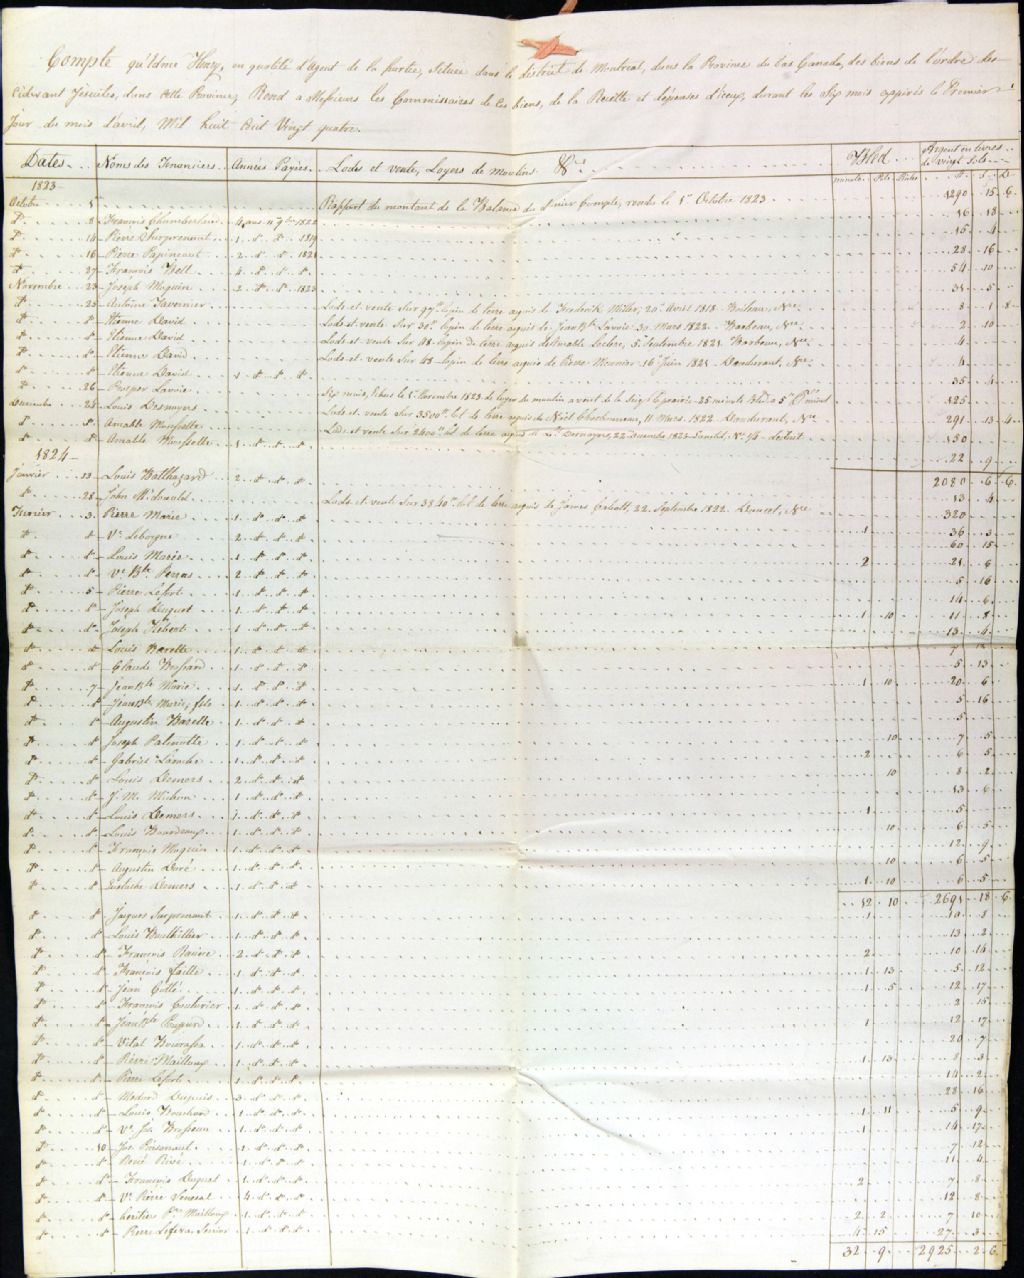 Compte qu'Edme Henry, en qualité d'Agent de la partie, située dans le district de Montreal, dans la Province du bas Canada, des biens de l'ordre des
Cidevant Jésuites, dans cette Province, Rend a Messieurs les Commissaires de ces biens, de la Recette et dépenses d'iceux, durant les Six mois expirés le Premier
Jour du mois d'avril, Mil huit Cent Vingt quatre.
Dates Noms des Tenanciers Années Payées Lods et vente, Loyers de moulins &c. Bled Argent en livres de vingt Sols
minots Pots
1823
Octobre 1 Rapport du montant de la Balance du dernier Compte, rendu le 1er Octobre 1823 1290 15 6
do 8 François Chamberlin 4 ans 16 18
do 14 Pierre Surprenant 1 do do 1819 15 4
do 16 Pierre Papineau 2 do do 1821 28 16
do 27 François Bell 4 do do do 54 10
Novembre 23 Joseph Moquin 2 do do 1823 31 5
do 25 Antoine Tavernier Lods et vente Sur lopin de terre acquis de Frederik Miller, 20 Avril 1818 Nre 8 1 8
do do Etienne David Lods et vente Sur 30 lopin de terre acquis de Jean Bte Lavoie 30 Mars 1822 Nre 2 10
do do Etienne David Lods et vente Sur 48 lopin de terre acquis de Amable Leclerc, 5 Septembre 1821 Nre 4
do do Etienne David Lods et vente Sur 48 lopin de terre acquis de Pierre Monnier 16 Juin 1821 Dandurant, Nre 4
do do Etienne David 1 do do do 35 4
do 26 Prosper Lavoie Six mois, échus le 1er Novembre 1823 de loyer du moulin a vent de la Seigie Laprairie 25 minots Bled a 5 125
Decembre 24 Louis Desnoyers Lods et vente Sur 3500 lot de terre acquis de Noël Charbonneau, 11 Mars 1822 Dandurant, Nre 291 13 4
do do Amable Moussette Lods et vente Sur 2400 lot de terre acquis de Desnoyers, 22 Decembre 1823 150
do do Amable Moussette 1 do do do 22 9
1824
2080 6 6
Janvier 13 Louis Balthazard 2 do do do 13 4
do 28 John McDonald Lods et vente Sur 3840 lot de terre acquis de James 22 Septembre 1822 Doucet, Nre 320
Fevrier 3 Pierre Marie 1 do do do 1 36 3
do do Ve Lebourgne 2 do do do 60 15
do do Louis Marie 1 do do do 2 21 6
do do Ve Bte Perras 2 do do do 5 16
do 5 Pierre Lefort 1 do do do 14 6
do do Joseph Duquet 1 do do do 1 10 11 8
do do Joseph Hébert 1 do do do 13 4
do do Louis Barette 1 do do do 7 12
do do Claude Brossard 1 do do do 5 13
do 7 Jean Bte Marie 1 do do do 1 10 20 6
do do Jean Bte Marie, fils 1 do do do 5 16
do do Augustin Barette 1 do do do 5
do do Joseph Palinotte 1 do do do 10 7 5
do do Gabriel Laroche 1 do do do 2 6 5
do do Louis Demers 2 do do do 10 8 2
do do J. M. Michon 1 do do do 13 6
do do Louis Demers 1 do do do 1 5
do do Louis Bourdeaux 1 do do do 10 6 5
do do François Moquin 1 do do do 12 9
do do Augustin Doré 1 do do do 10 6 5
do do Eustache Demers 1 do do do 1 10 6 5
12 10 2691 18 6
do do Jacques Surprenant 1 do do do 1 10 3
do do Louis Beuthillier 1 do do do 13 2
do do François Racine 2 do do do 2 10 14
do do François faille 1 do do do 1 13 5 12
do do Jean Collé 1 do do do 1 5 12 17
do do François Couturier 1 do do do 2 15
do do Jean Bte Dupuis 1 do do do 1 12 17
do do Vital Bourassa 1 do do do 20 7
do do Pierre Mailloux 1 do do do 1 13 8 3
do do Pierre Lefort 1 do do do 14 2
do do Medard Dupuis 3 do do do 28 16
do do Louis Bouchard 1 do do do 1 11 5 9
do do Ve Jos Brosseau 1 do do do 1 14 17
do 10 Jos Pinsonaut 1 do do do 7 12
do do René Rivé 1 do do do 11 4
do do François Duquet 1 do do do 2 7 8
do do Ve Pierre Senecal 4 do do do 12 8
do do heritiers Pre Mailloux 1 do do do 2 2 7 10
do do Pierre Lefevre Senior 1 do do do 4 15 27 3
32 9 2925 2 6